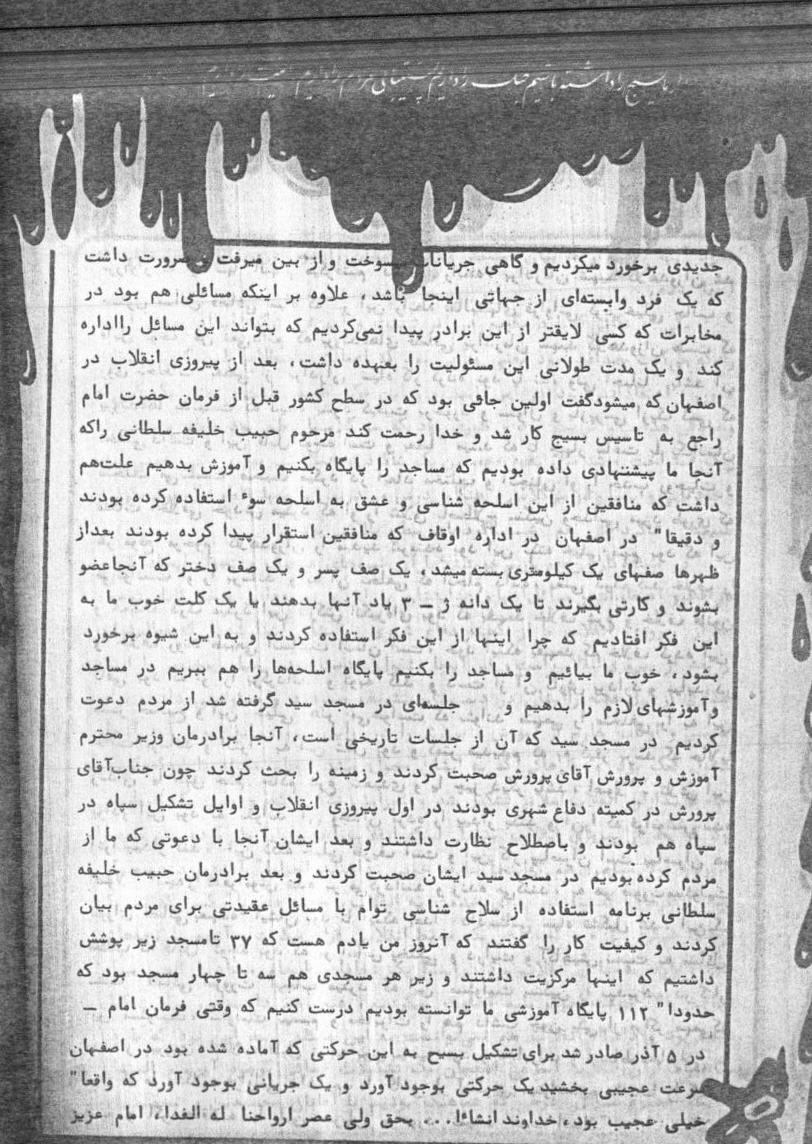 بسیج را داشته باشیم جنگ را داریم پشتیبانی مردم را داریم
جدیدی برخورد میکردیم و گاهی جریانات میسوخت و از بین میرفت و ضرورت داشت
که یک فرد وابسته‌ای از جهاتی اینجا باشد، علاوه بر اینکه مسائلی هم بود در
مخابرات که کسی لایقتر از این برادر پیدا نمی‌کردیم که بتواند این مسائل رااداره
کند و یک مدت طولانی این مسئولیت را بعهده داشت، بعد از پیروزی انقلاب در
اصفهان که میشودگفت اولین جائی بود که در سطح کشور قبل از فرمان حضرت امام
راجع به تاسیس بسیج کار شد و خدا رحمت کند مرحوم حبیب خلیفه سلطانی راکه
آنجا ما پیشنهادی داده بودیم که مساجد را پایگاه بکنیم و آموزش بدهیم علت‌هم
داشت که منافقین از این اسلحه شناسی و عشق به اسلحه سوء استفاده کرده بودند
و دقیقا" در اصفهان در اداره اوقاف که منافقین استقرار پیدا کرده بودند بعداز
ظهرها صفهای یک کیلومتری بسته میشد، یک صف پسر و یک صف دختر که آنجاعضو
بشوند و کارتی بگیرند تا یک دانه ژ ـ ۳ یاد آنها بدهند یا یک کلت خوب ما به
این فکر افتادیم که چرا اینها از این فکر استفاده کردند و به این شیوه برخورد
بشود، خوب ما بیائیم و مساجد را بکنیم پایگاه اسلحه‌ها را هم ببریم در مساجد
وآموزشهای لازم را بدهیم و جلسه‌ای در مسجد سید گرفته شد از مردم دعوت
کردیم در مسجد سید که آن از جلسات تاریخی است، آنجا برادرمان وزیر محترم
آموزش و پرورش آقای پرورش صحبت کردند و زمینه را بحث کردند چون جناب‌آقای
پرورش در کمیته دفاع شهری بودند در اول پیروزی انقلاب و اوایل تشکیل سپاه در
سپاه هم بودند و باصطلاح نظارت داشتند و بعد ایشان آنجا با دعوتی که ما از
مردم کرده بودیم در مسجد سید ایشان صحبت کردند و بعد برادرمان حبیب خلیفه
سلطانی برنامه استفاده از سلاح شناسی توام با مسائل عقیدتی برای مردم بیان
کردند و کیفیت کار را گفتند که آنروز من یادم هست که ۳۷ تامسجد زیر پوشش
داشتیم که اینها مرکزیت داشتند و زیر هر مسجدی هم سه تا چهار مسجد بود که
حدودا" ۱۱۲ پایگاه آموزشی ما توانسته بودیم درست کنیم که وقتی فرمان امام ـ
در ۵ آذر صادر شد برای تشکیل بسیج به این حرکتی که آماده شده بود در اصفهان
سرعت عجیبی بخشید یک حرکتی بوجود آورد و یک جریانی بوجود آورد که واقعا"
خیلی عجیب بود، خداوند انشاءا... بحق ولی عصر ارواحنا له الفداء امام عزیز